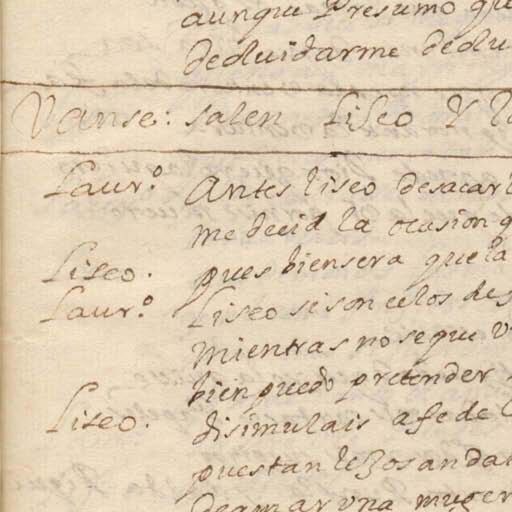 aunque Presumo que
de oluidarme de olu
Vanse: salen Liseo Y la
Laur.º Antes liseo desacar
me decid la ocasion q
Liseo. pues bien sera que la
Laur.º Liseo si son celos des
mientras no se que v
bien puedo pretender
Liseo. disimulais a fe de
pues tan lexos andai
de amar vna muger